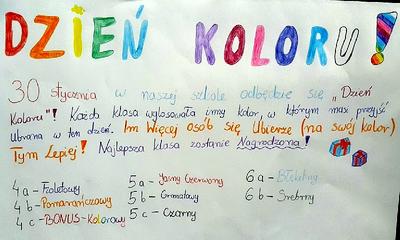 DZIEŃ KOLORU!
30 stycznia w naszej szkole odbędzie się "Dzień
Koloru"! Każda klasa wylosowała inny kolor, w którym musi przyjść
ubrana w ten dzień. Im Więcej osób się Ubierze (na swój kolor)
Tym Lepiej! Najlepsza klasa zostanie Nagrodzona!
4a - Fioletowy
4b - Pomarańczowy
4c - BONUS - Kolorowy
5a - Jasny Czerwony
5b - Granatowy
5c - Czarny
6a - Błękitny
6b - Srebrny